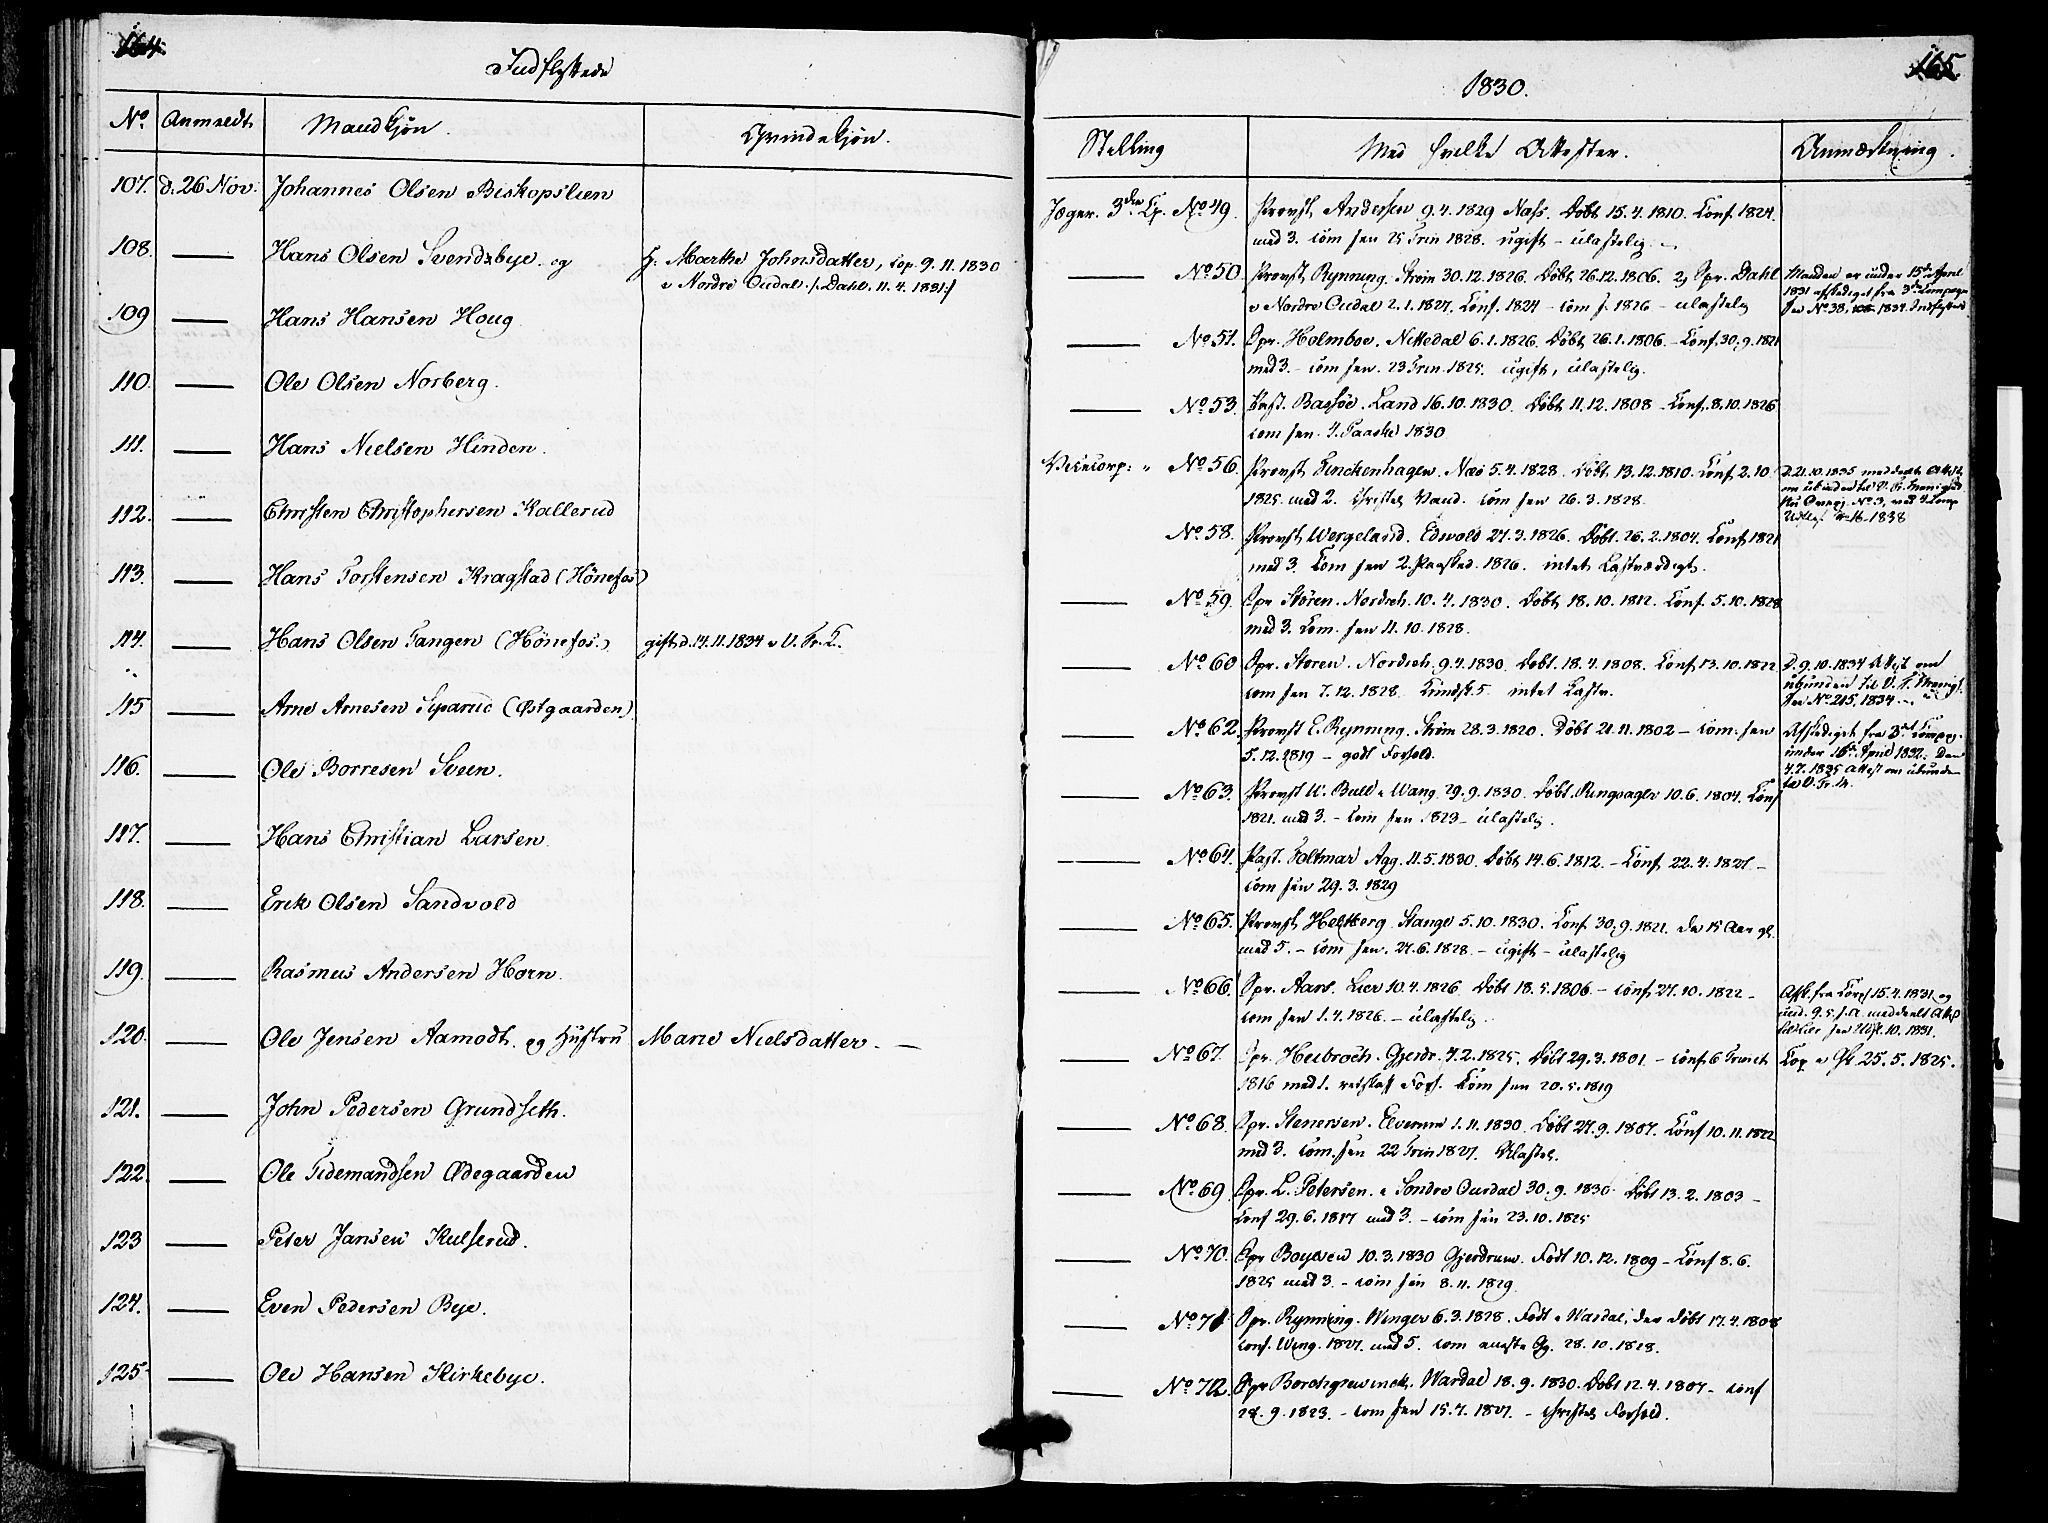 164.
Indflyttede
No. Anmeldt Mandkjøn. Qvindekjøn.
107. d. 26 Nov: Johannes Olsen Biskopslien
108. Hans Olsen Svendsbye og H: Marthe Johnsdatter, cop. 9.11.1830
v Nordre Oudal /: Dahl. 11.4.1831:/
109 Hans Hansen Houg
110. Ole Olsen Norberg.
111. Hans Nielsen Hinden.
112. Christen Christophersen Kallerud
113. Hans Torstensen Kragstad (Hönefos)
114. Hans Olsen Tangen (Hönefos.) gift d. 14.11.1834 v V. Fr. K.
115 Arne Arnesen (Østgaarden)
116. Ole Borresen Sveen.
117. Hans Christian Larsen
118. Erik Olsen Sandvold
119. Rasmus Andersen Horn.
120. Ole Jensen Aamodt. og Hustru Marie Nielsdatter.
121. John Pedersen Grundseth.
122. Ole Tidemandsen Ødegaarden
123 Peter Jansen Kulserud.
124. Even Pedersen Bye.
125. Ole Hansen Kirkebye.
165.
1830.
Stilling Med hvilke Attester. Anmærkning.
Jæger. 3die Cp. No 49. Provst Andersen 9.4.1829 Næs. Døbt 15.4.1810. Conf. 1824.
med 3. com sen 25 Trin 1828. ugift – ulastelig.
No 50. Provst Rynning. Strøm 30.12.1826. Døbt 26.12.1806. 2) Spr. Dahl Manden er under 15de April
v Nordre Oudal 2.1.1827. Conf. 1824 – com s. 1826 – ulastelig 1831 afskediget fra 3die Compagn.
No 51. Spr. Holmboe. Nittedal 6.1.1826. Døbt 26.1.1806. – Conf. 30.9.1821
med 3. – com sen. 23 Trin 1825. ugift, ulastelig.
No 53. Past. Bassöe. Land 16.10.1830. Døbt 11.12.1808 – Conf. 8.10.1826
com sen. 4. Paaske 1830
No 56. Provst Finckenhagen. Næs 5.4.1828. Døbt 13.12.1810. Conf. 2.10.
1825 med 2. christel. Vand. com sen 26.3.1828.
No 58. Provst Wergeland. Edwold 27.3.1826. Døbt. 26.2.1804. Conf. 1821
med 3. Com sen 2. Paasked. 1826. intet Lastværdigt.
No 59. Spr Stören. Nordreh. 10.4.1830. Døbt 18.10.1812. Conf. 5.10.1828
med 3. Com. sen 11.10.1828.
No 60 Spr. Støren. Nordreh. 9.4.1830. Døbt. 18.4.1808. Conf. 13.10.1822
com sen 7.12.1828. Kundsk. 5. intet Lastv.
No 62. Provst E. Rynning. Strøm 28.3.1820. Døbt 21.11.1802 – com. sen Afskediget fra 3die Compg.
5.12.1819 – godt Forhold. under 16de April 1832. Den
No 63. Provst W. Bull v Wang. 29.9.1830. Døbt. Ringsager 10.6.1804. Conf 4.7.1835 Attest om ubunden
1821. med 3. – com sen 1829 – ulastelig.
No 64. Past. Foltmar Agg. 11.5.1830. Døbt 14.6.1812. – Conf. 22.4.1827 –
com sen 29.3.1829
No 65. Provst Heltberg Stange 5.10.1830. Conf. 30.9.1821. da 15 Aar gl.
med 5. – com sen. 24.6.1828. – ugift – ulastelig
No 66. Spr. Aars. Lier 10.4.1826. Døbt 18.5.1806 – conf. 27.10.1822 – Afsk. fra Corps 15.4.1831 og
com sen 1.4.1826. – ulastelig.
No 67. Spr. Heibroch. Gjerdr. 4.2.1825. Døbt 29.3.1801. – conf. 6 Trinit Cop. v Gr. 25.5.1825.
1816 med 1. retskaff. Forh. Com sen 20.5.1819
No 68. Spr. Stenersen. Elverum 1.11.1830. Døbt 27.9.1807. Conf 10.11.1822
med 3. com. sen 22 Trin 1827. Ulastel.
No 69 Spr. L. Petersen. v Söndre Ourdal 30.9.1830. Døbt 13.2.1803 –
Conf 29.6.1817 med 3. – com sen 23.10.1825
No 70. Spr Boyesen 10.3.1830 Gjerdrum. Født 10.12.1809 – Conf 8.6.
1825 med 3. – com sen 8.11.1829.
No 71 Spr. Rynning. Winger 6.3.1828. Født v Wardal, der døbt 17.4.1808
conf. Wing. 1827. med 5. com anden Gg. 28.10.1828.
No 72. Spr Borchgrevinck. Wardal 18.9.1830. Døbt 12.4.1807 – conf
28.9.1823. – com sen 15.4.1827. – christel. Forhold.